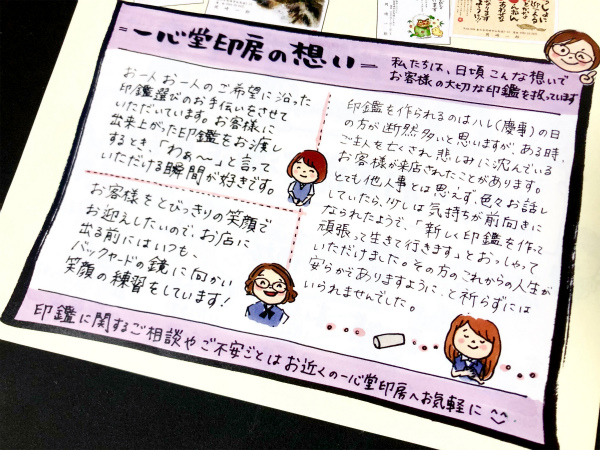 一心堂印房の想い
私たちは、日頃こんな想いで
お客様の大切な印鑑を扱っています
お一人お一人のご希望に沿った
印鑑選びのお手伝いをさせて
いただいています。お客様に
出来上がった印鑑をお渡し
するとき、「わぁ〜」と言って
いただける瞬間が好きです。
お客様をとびっきりの笑顔で
お迎えしたいので、お店に
出る前にはいつも、
バックヤードの鏡に向かい
笑顔の練習をしています!
印鑑を作られるのはハレ(慶事)の日
の方が断然多いと思いますが、ある時、
ご主人を亡くされ悲しみに沈んでいる
お客様が来店されたことがあります。
とても他人事とは思えず、色々お話し
していたら、少しは気持ちが前向きに
なられたようで、「新しく印鑑を作って
頑張って生きて行きます」とおっしゃって
いただけました。その方のこれからの人生が
安らかでありますように、と祈らずには
いられませんでした。
印鑑に関するご相談やご不安ごとはお近くの一心堂印房へお気軽に